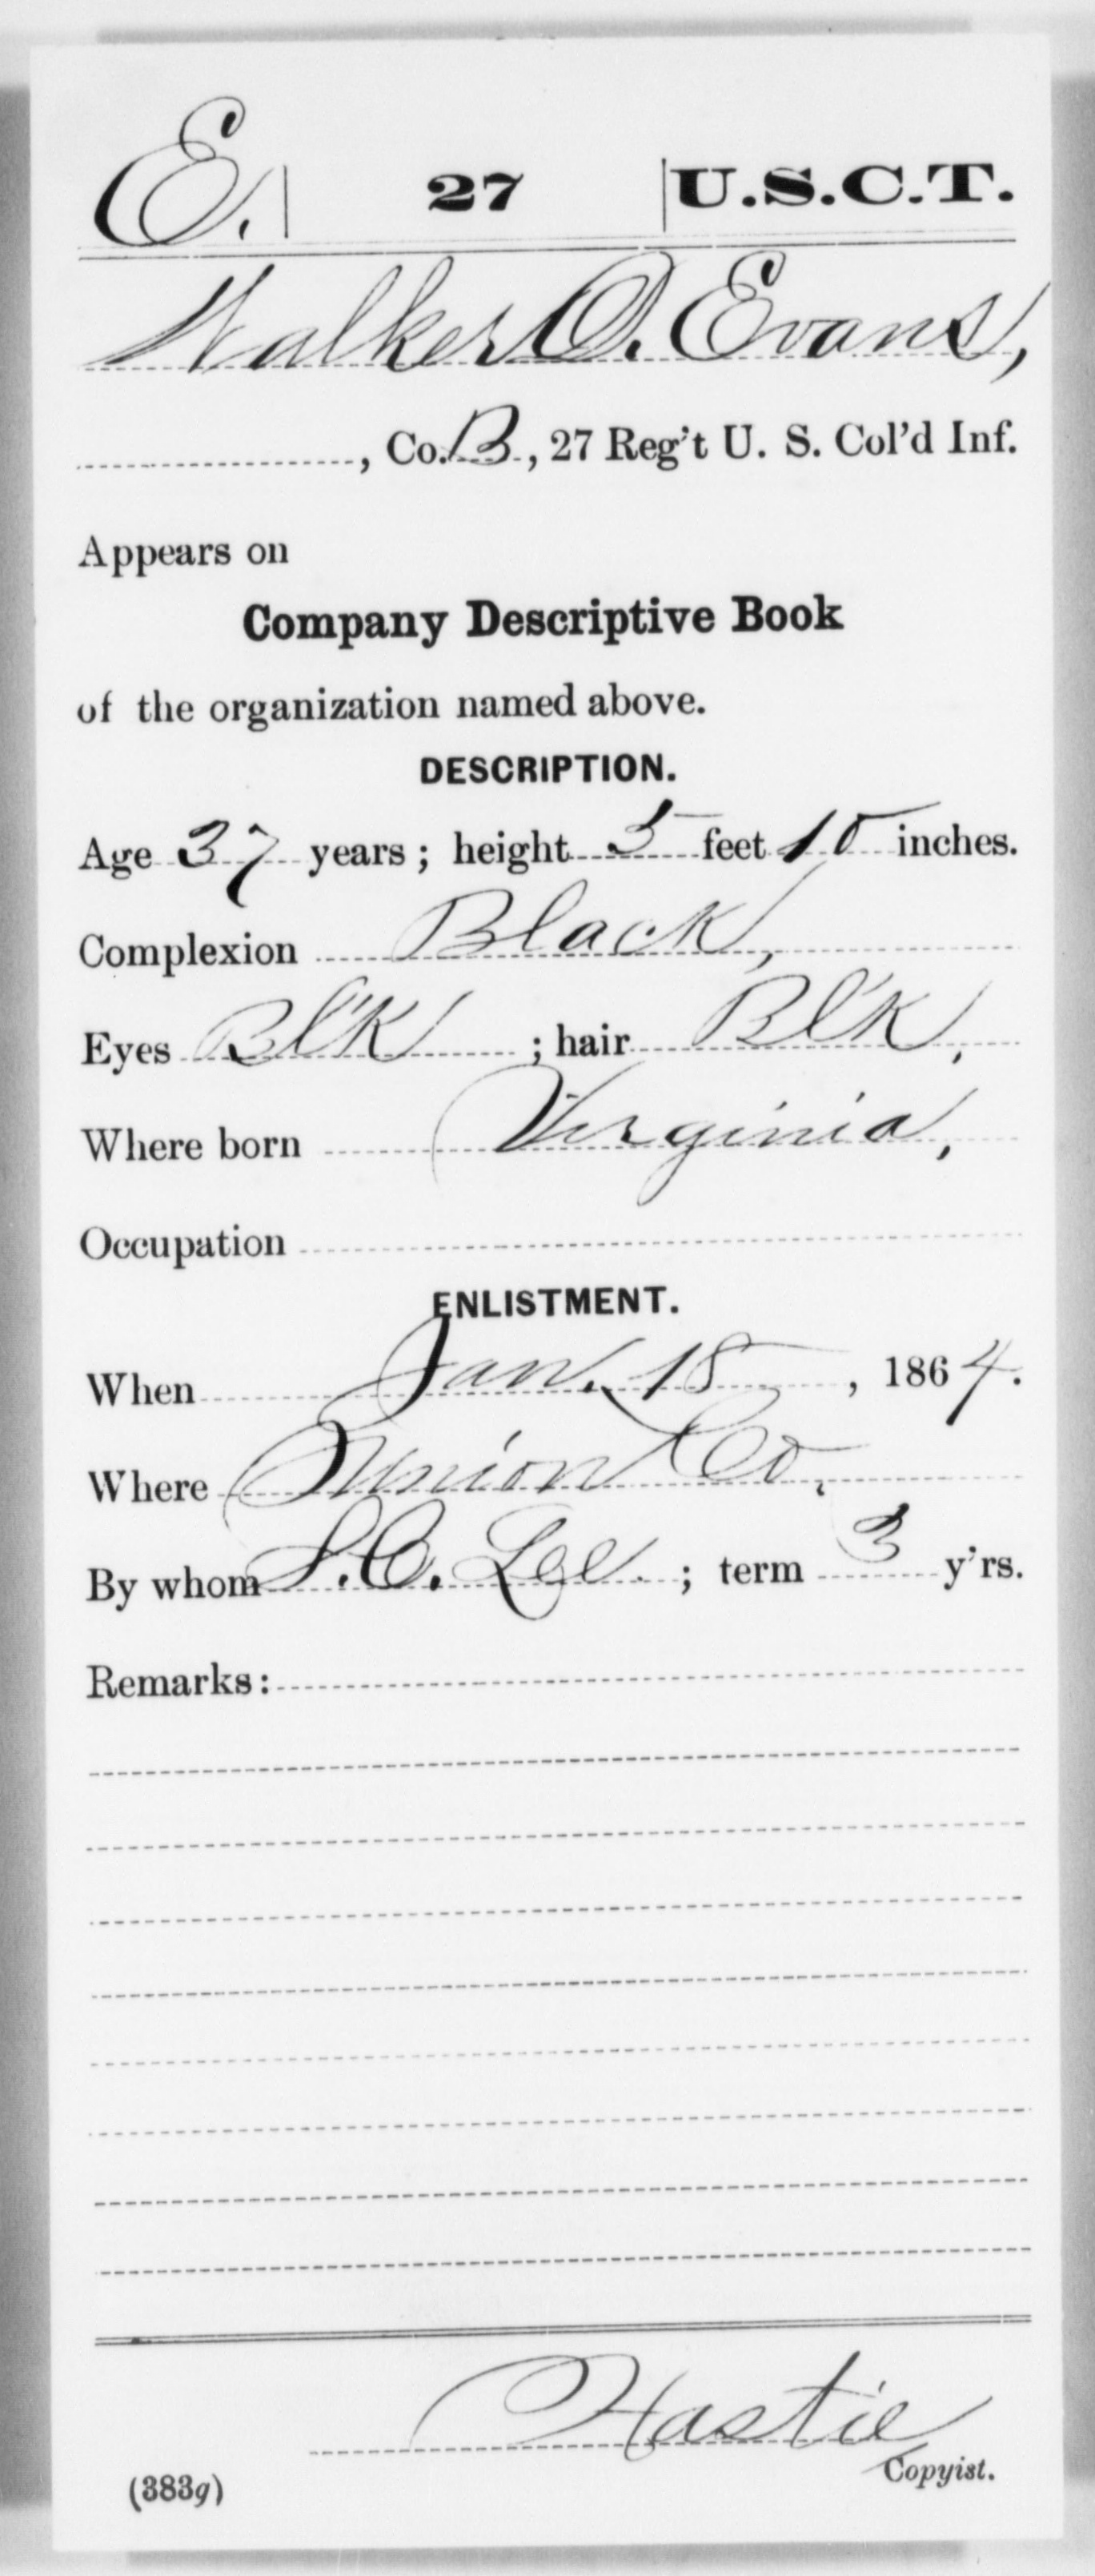 E. | 27 | U.S.C.T.
Walker O. Evans,
, Co. B, 27 Reg't U. S. Col'd Inf.
Appears on
Company Descriptive Book
of the organization named above.
DESCRIPTION.
Age 37 years; height 5 feet 10 inches.
Complexion Black,
Eyes Bl'k ; hair Bl'k,
Where born Virginia,
Occupation
ENLISTMENT.
When Jan. 18, 1864.
Where Union Co.
By whom S. C. Lee. ; term 3 y'rs.
Remarks:
Hastie
Copyist.
(383g)